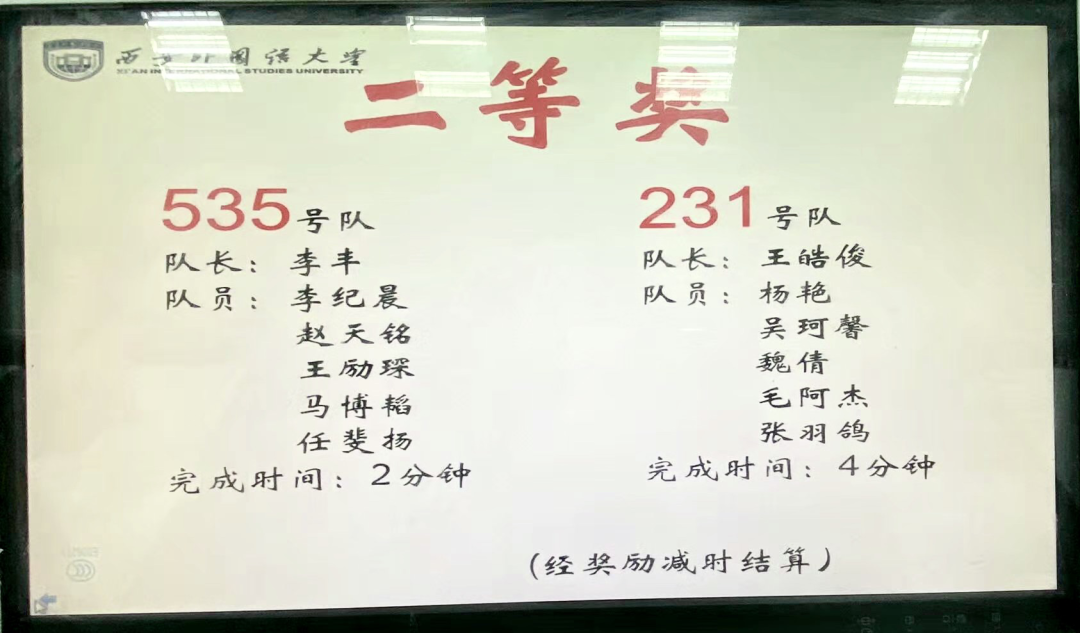 西安外国语大学
XI'AN INTERNATIONAL STUDIES UNIVERSITY
二等奖
535号队
队长：李丰
队员：李纪晨
赵天铭
王励琛
马博韬
任斐扬
完成时间：2分钟
231号队
队长：王皓俊
队员：杨艳
吴珂馨
魏倩
毛阿杰
张羽鸽
完成时间：4分钟
（经奖励减时结算）